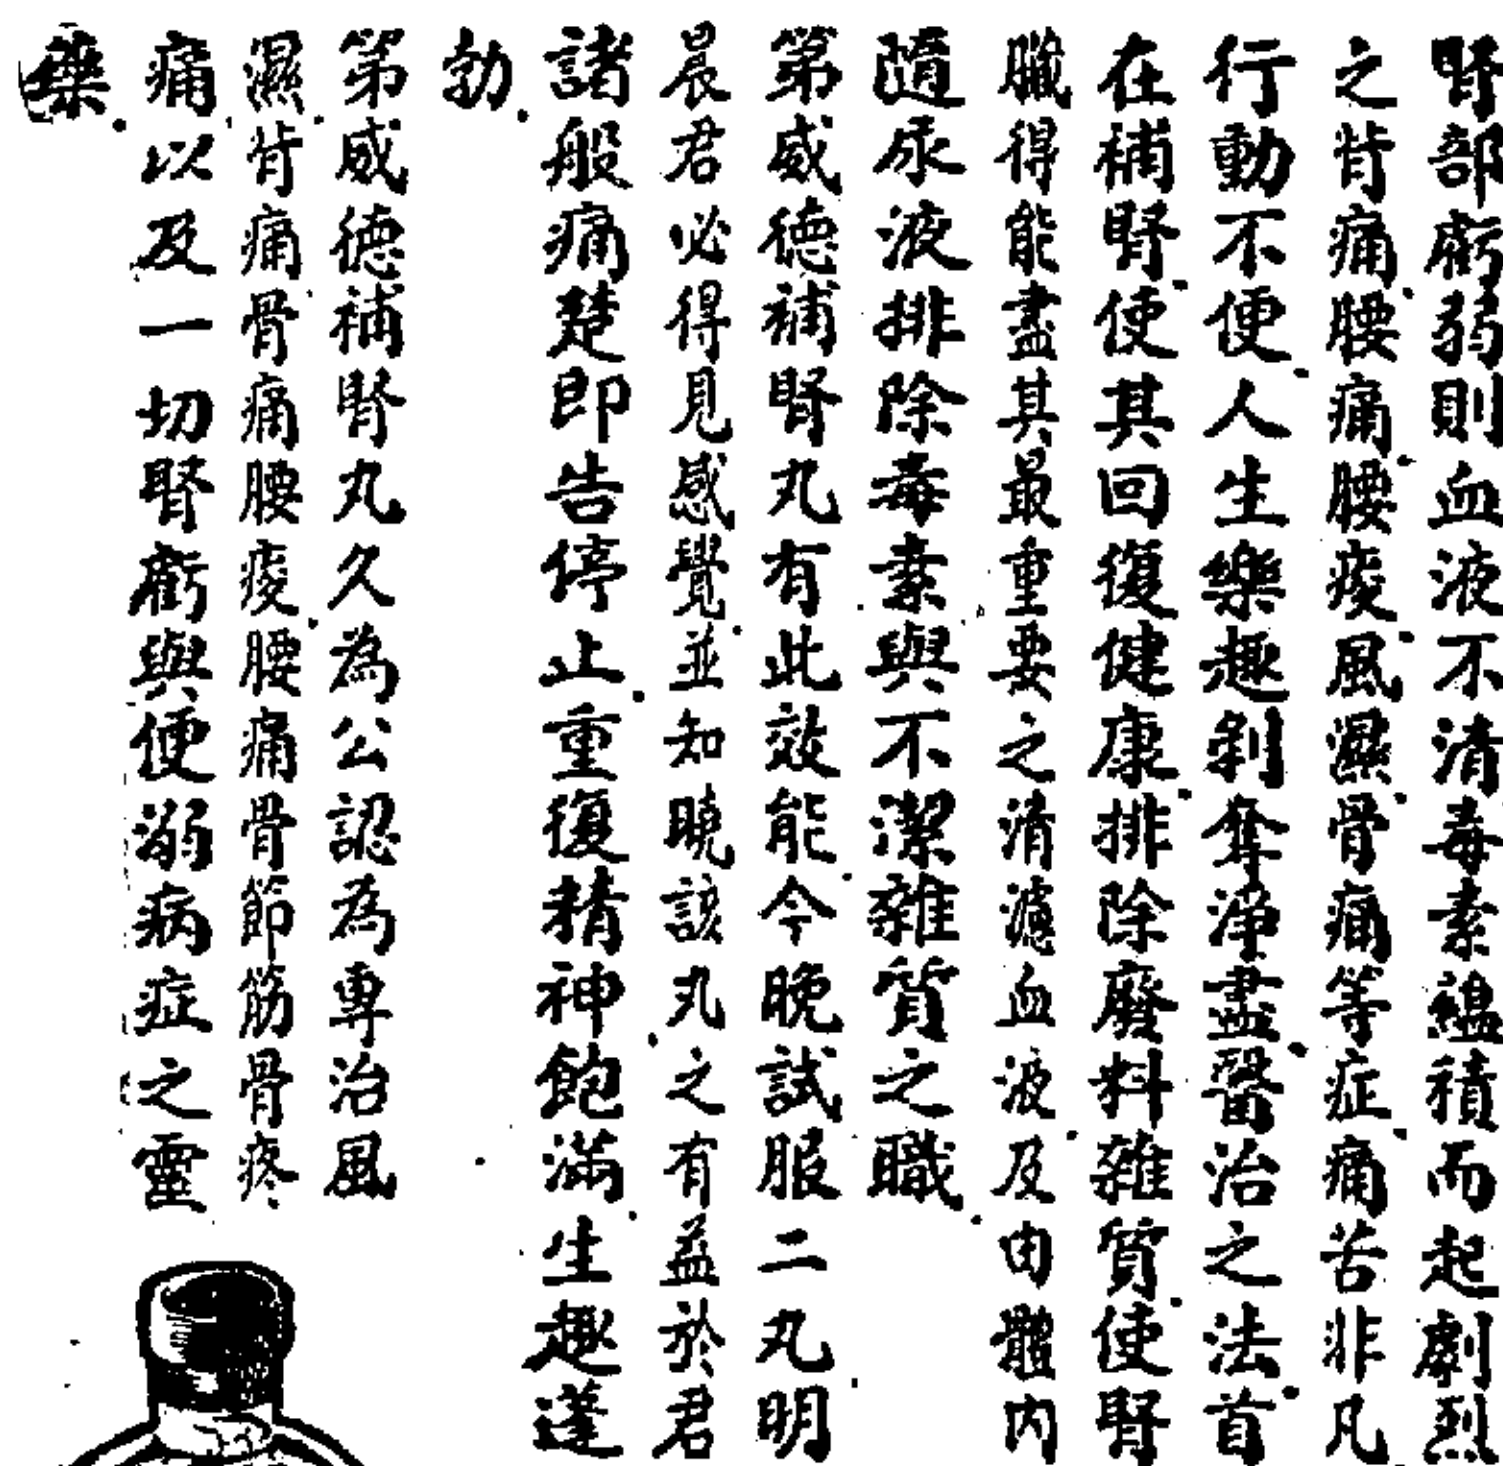 腎部虧弱則血液不清毒素蘊積而起劇烈
之背痛腰痛腰痠風濕骨痛等症痛苦非凡
行動不便人生樂趣剝奪淨盡醫治之法首
在補腎使其回復健康排除廢料雜質使腎
臟得能盡其最重要之清濾血液及由體內
隨尿液排除毒素與不潔雜質之職
第威德補腎丸有此效能今晚試服二丸明
晨君必得見感覺並知曉該丸之有益於君
諸般痛楚即告停止重復精神飽滿生趣蓬
勃
第威德補腎丸久為公認為專治風
濕背痛骨痛腰痠腰痛骨節筋骨疼
痛以及一切腎虧與便溺病症之靈
藥